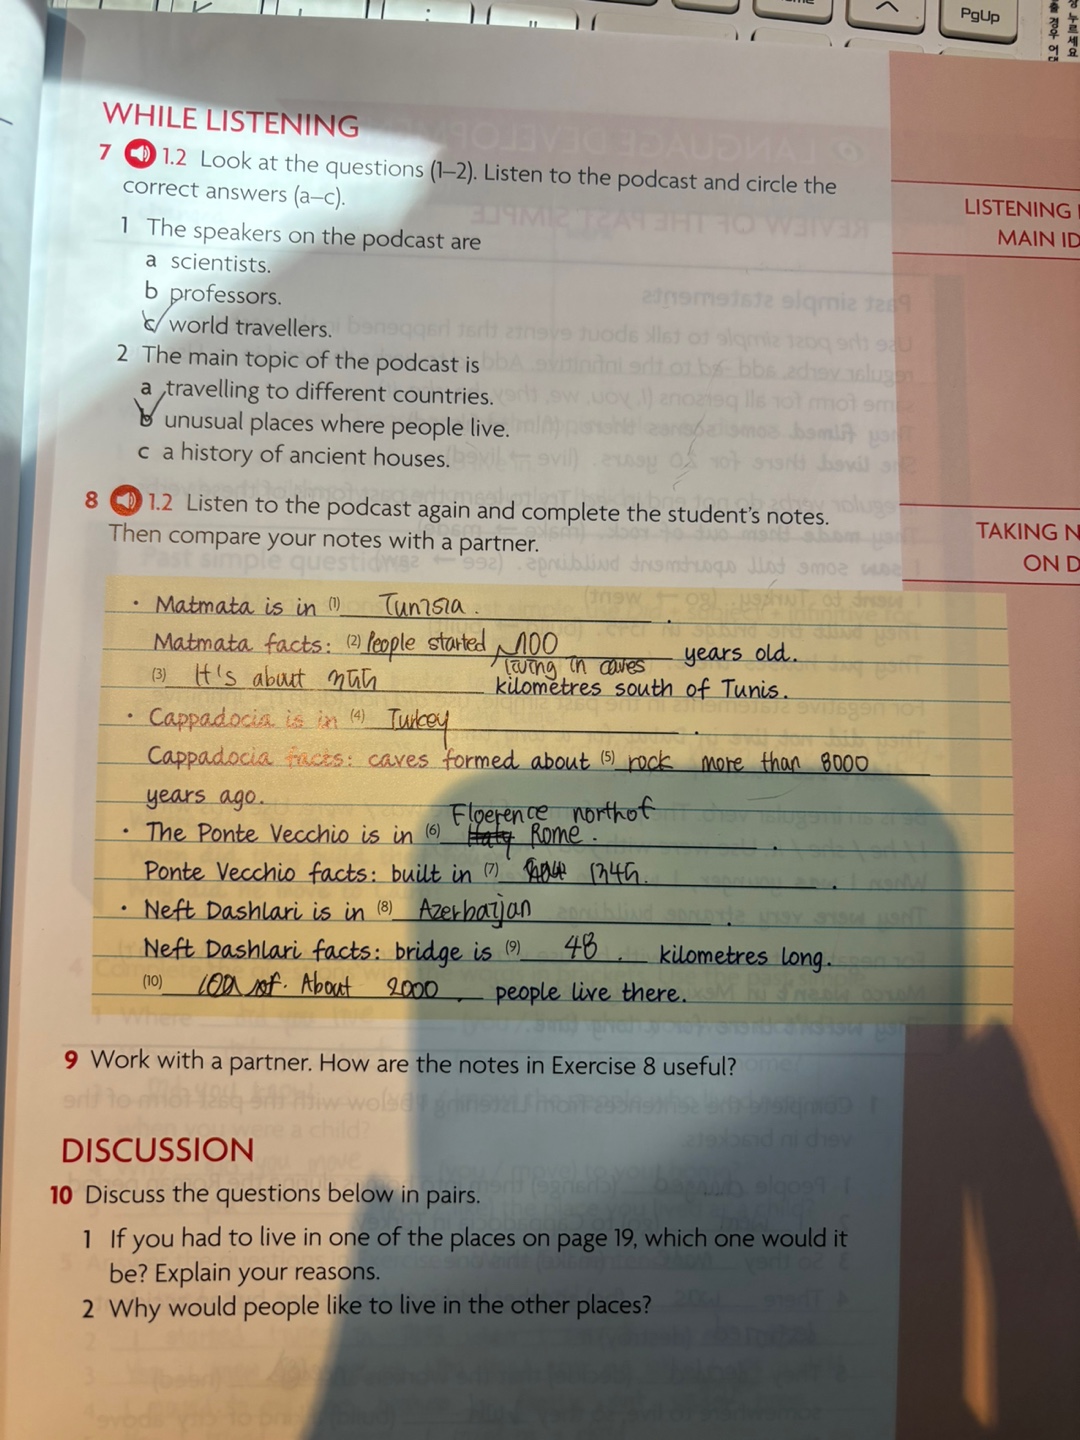 PgUp
WHILE LISTENING
7 1.2 Look at the questions (1–2). Listen to the podcast and circle the
correct answers (a–c).
LISTENING
MAIN ID
1 The speakers on the podcast are
a scientists.
b professors.
c world travellers.
2 The main topic of the podcast is
a travelling to different countries.
b unusual places where people live.
c a history of ancient houses.
8 1.2 Listen to the podcast again and complete the student's notes.
Then compare your notes with a partner.
TAKING N
ON D
• Matmata is in (1) Tunisia.
Matmata facts: (2) People started 700 years old.
living in caves
(3) It's about kilometres south of Tunis.
• Cappadocia is in (4) Turkey.
Cappadocia facts: caves formed about (5) rock more than 8000
years ago.
Floerence northof
• The Ponte Vecchio is in (6) Rome.
Ponte Vecchio facts: built in (7) 1345.
• Neft Dashlari is in (8) Azerbaijan.
Neft Dashlari facts: bridge is (9) 48. kilometres long.
(10) About 2000. people live there.
9 Work with a partner. How are the notes in Exercise 8 useful?
DISCUSSION
10 Discuss the questions below in pairs.
1 If you had to live in one of the places on page 19, which one would it
be? Explain your reasons.
2 Why would people like to live in the other places?